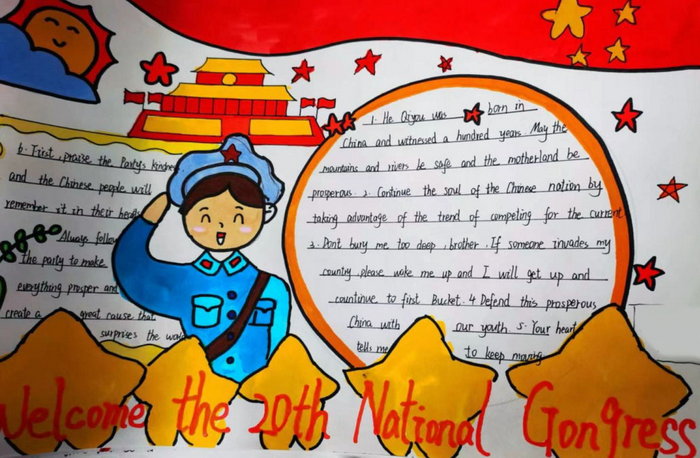 6. First, praise the Party's kindness
and the Chinese people will
remember it in their hearts
Always follow
the party to make
everything prosper and
create a great cause that
surprises the world
1. He Qiyou was born in
China and witnessed a hundred years. May the
mountains and rivers be safe and the motherland be
prosperous. 2. Continue the soul of the Chinese nation by
taking advantage of the trend of competing for the current
3. Don't bury me too deep, brother. If someone invades my
country, please wake me up and I will get up and
countinue to first Bucket. 4 Defend this prosperous
China with our youth 5. Your heart
tells me to keep moving
Welcome the 20th National Gongress